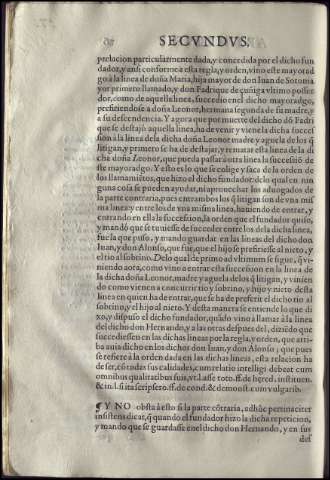 SECVNDVS
prelacion particularmente dada, y concedida por el dicho fun
dador, y ansi conforme à esta regla, y orden, vino este mayorad
go à la linea de doña Maria, hija mayor de don Iuan de Sotoma
yor primero llamado, y don Fadrique de çuñiga vltimo posse
dor, como de aquella linea, succedio en el dicho mayoradgo,
prefiriendose a doña Leonor, hermana segunda de su madre, y
a su descendencia. Y agora que por muerte del dicho dõ Fadri
que se destajò aquella linea, ha de venir y viene la dicha succes-
sion à la linea de la dicha doña Leonor madre y aguela de los q̃
litigan, y primero se ha de destajar, y rematar esta linea de la di
cha doña Leonor, que pueda passar à otra linea la successiõ de
este mayoradgo. Y esto es lo que se colige y saca de la orden de
los llamamiẽtos, que hizo el dicho fundador, de lo qual en nin
guna cosa se pueden ayudar, ni aprouechar los aduogados de
la parte contraria, pues entrambos los q̃ litigan son de vna mis
ma linea: y entre los de vna misma linea, hauiendo de entrar, y
entrando en ella la succession, la orden que el fundador quiso,
y mandò que se tuuiesse de succeder entre los de la dicha linea,
fue la que puso, y mandò guardar en las lineas del dicho don
Iuan, y don Alonso, que fue, que el hijo se prefiriesse al nieto, y
el tio al sobrino. De lo qual de primo ad vltimum se sigue, q̃ vi-
niendo aora, como vino a entrar esta succession en la linea de
la dicha doña Leonor, madre y aguela de los q̃ litigan, y vinien
do como vienen a concurrir tio y sobrino, y hijo y nieto desta
linea en quien ha de entrar, que se ha de preferir el dicho tio al
sobrino, y el hijo al nieto. Y desta manera se entiende lo que di
xo, y dispuso el dicho fundador, quãdo vino a llamar à la linea
del dicho don Hernando, y a las otras despues del, diziẽdo que
succediessen en las dichas lineas por la regla, y orden, que arri-
ba auia dicho en los dichos don Iuan, y don Alonso, que pues
se refierẽ à la orden dada en las dichas lineas, esta relacion ha
de ser, cõ todas sus calidades, cum relatio intelligi debeat cum
omnibus qualitatibus suis, vt l. asse toto. ff. de hæred. instituen.
& in l. si ita scripsero. ff. de cond. & demonst. cum vulgarib.
¶ Y NO obsta à esto si la parte cõtraria, adhuc pertinaciter
insistens dicat, q̃ quando el fundador hizo la dicha repeticion,
y mando que se guardasse en el dicho don Hernando, y en sus
def